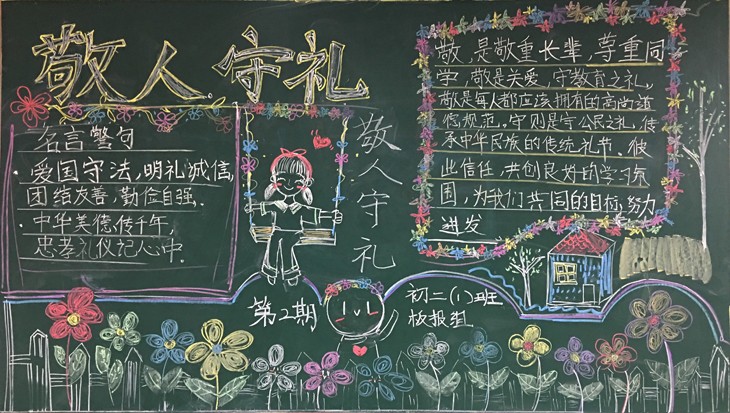 敬人守礼
名言警句
爱国守法,明礼诚信,
团结友善,勤俭自强.
中华美德传千年,
忠孝礼仪记心中.
敬人守礼
敬,是敬重长辈,尊重同
学,敬是关爱,守教育之礼,
敬是每人都应该拥有的高尚道
德规范.守则是守公民之礼,传
承中华民族的传统礼节.彼
此信任,共创良好的学习氛
围,为我们共同的目标,努力
进发
第2期
初二(1)班
板报组